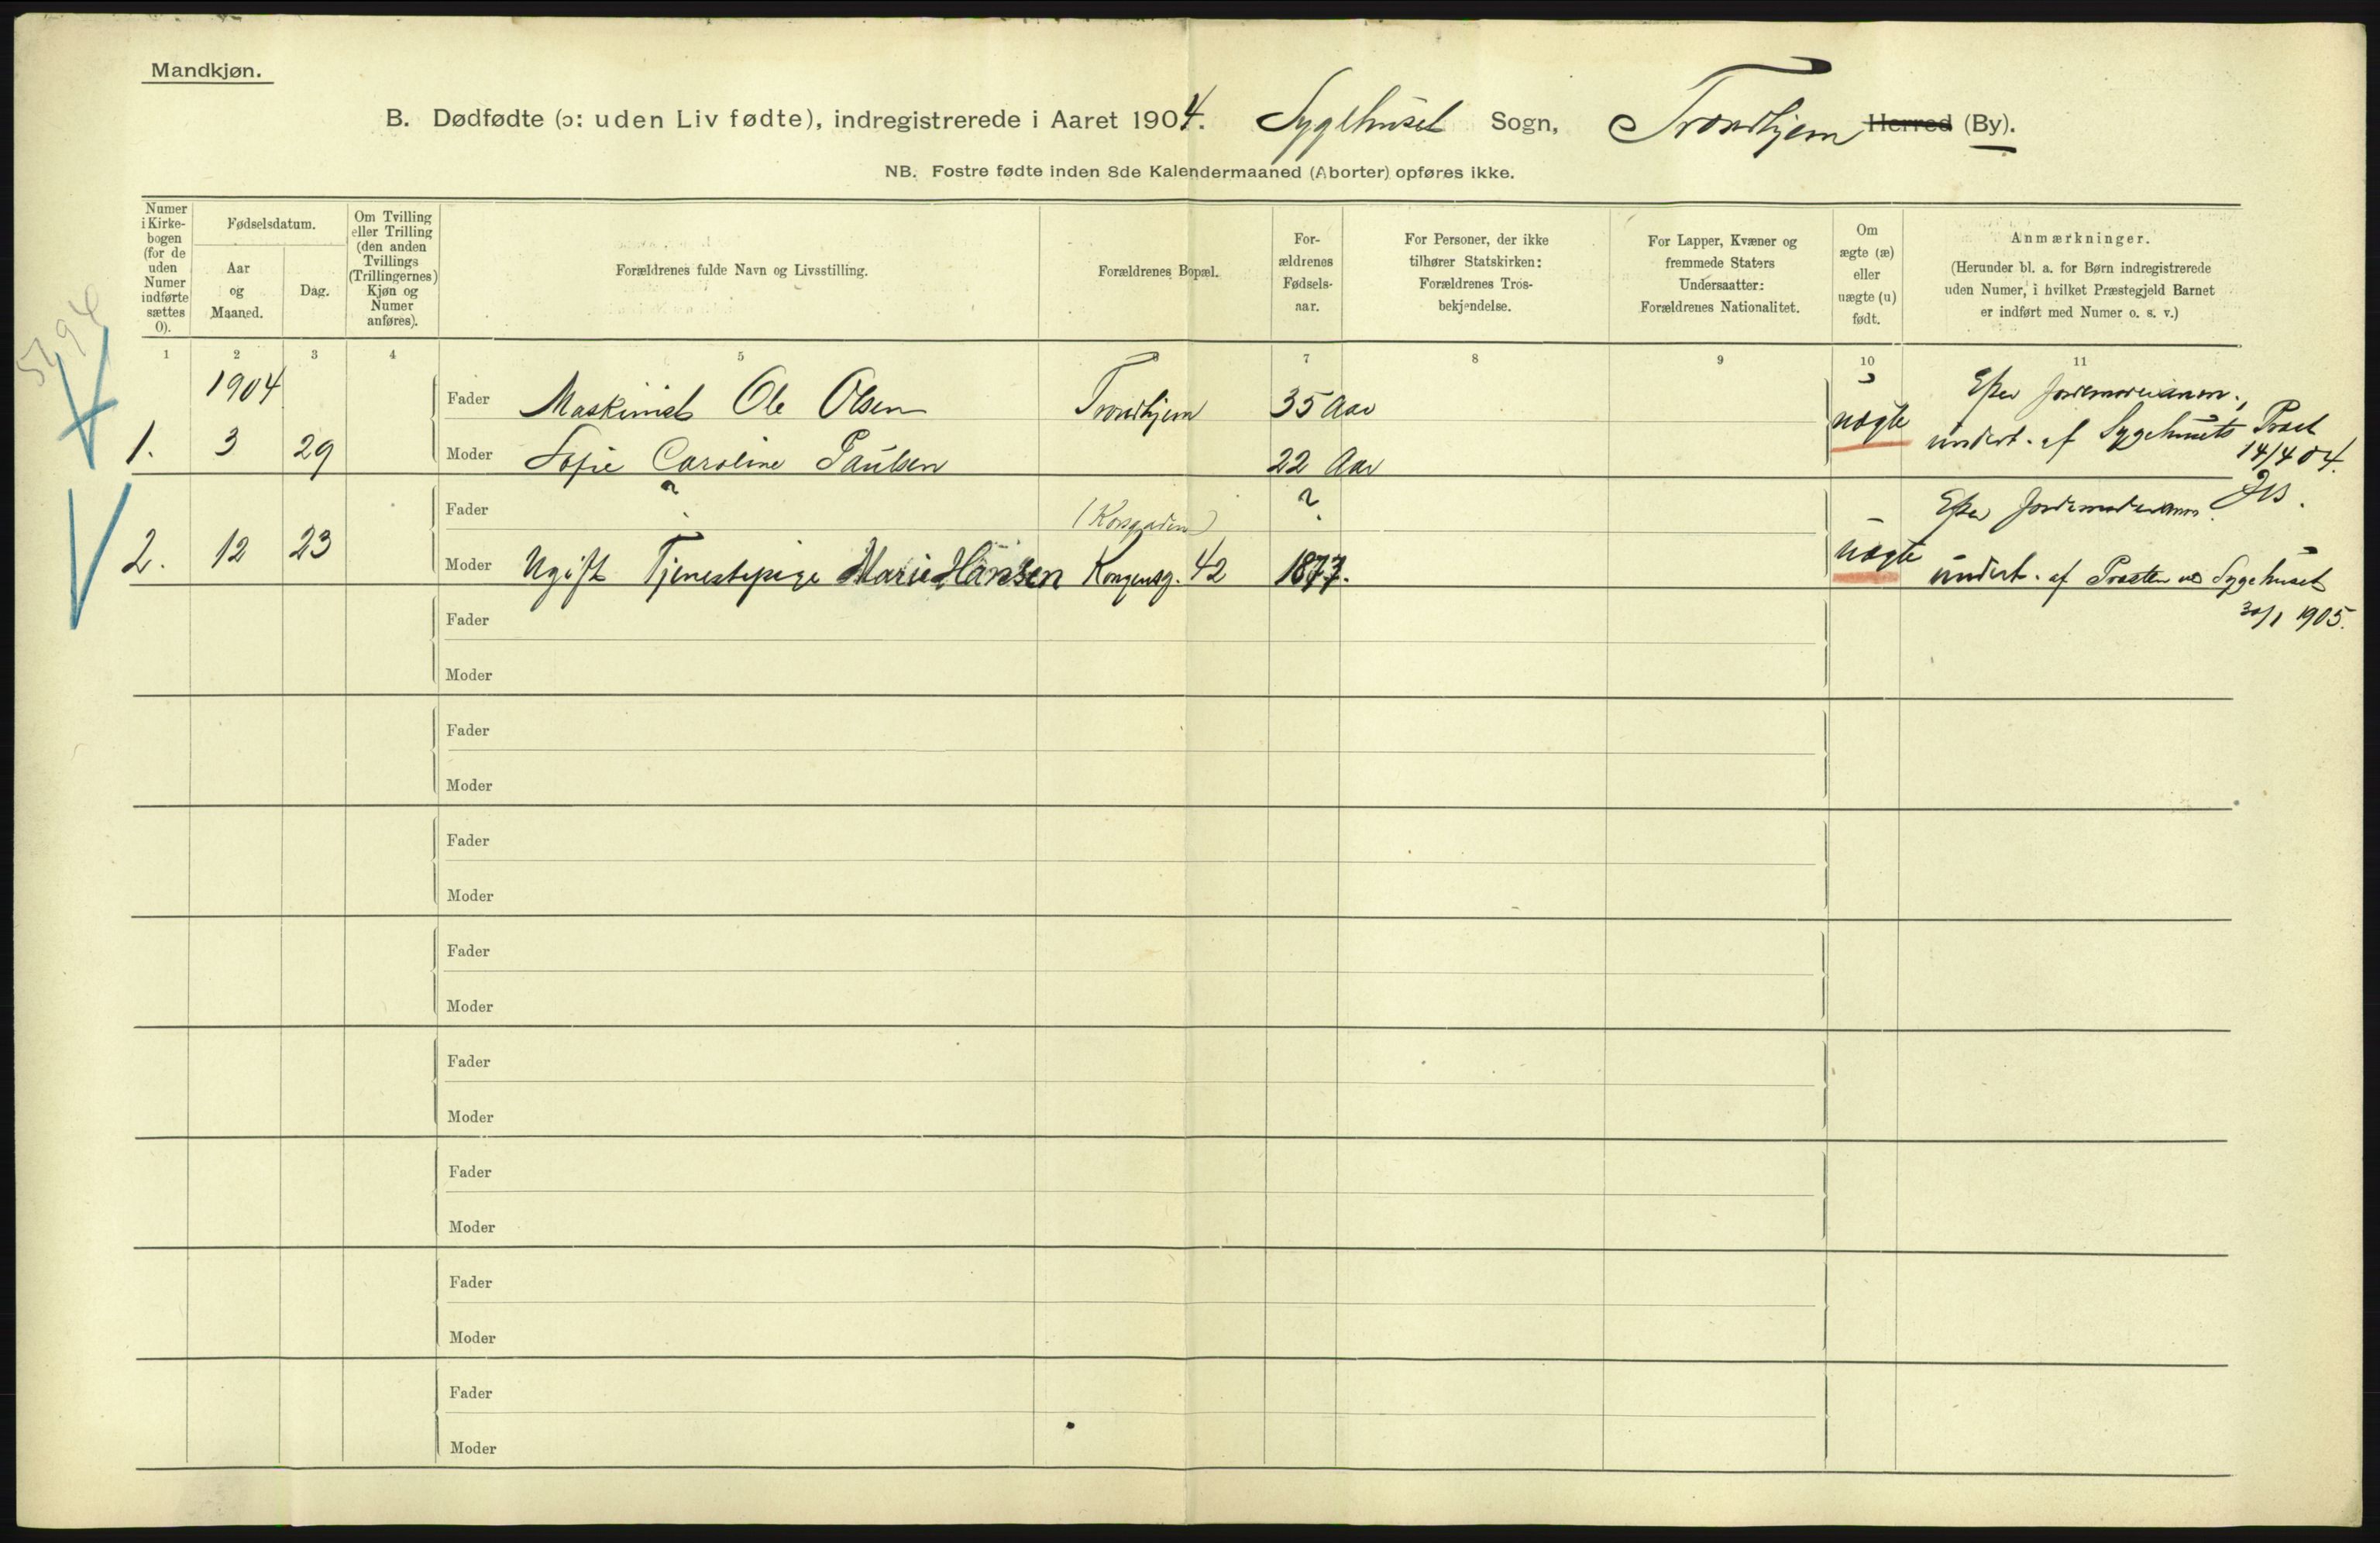 Mandkjøn.
B. Dødfødte (ɔ: uden Liv fødte), indregistrerede i Aaret 1904. Sygehuset Sogn, Trondhjem Herred (By).
NB. Fostre fødte inden 8de Kalendermaaned (Aborter) opføres ikke.
Numer i Kirke-bogen (for de uden Numer indførte sættes 0).
Fødselsdatum.
Aar og Maaned.
Dag.
Om Tvilling eller Trilling (den anden Tvillings (Trillingernes) Kjøn og Numer anføres).
Forældrenes fulde Navn og Livsstilling.
Forældrenes Bopæl.
For-ældrenes Fødsels-aar.
For Personer, der ikke tilhører Statskirken: Forældrenes Tros-bekjendelse.
For Lapper, Kvæner og fremmede Staters Undersaatter: Forældrenes Nationalitet.
Om ægte (æ) eller uægte (u) født.
Anmærkninger.
(Herunder bl. a. for Børn indregistrerede uden Numer, i hvilket Præstegjeld Barnet er indført med Numer o. s. v.)
1 2 3 4 5 6 7 8 9 10 11
1904
Fader Maskinist Ole Olsen Trondhjem 35 Aar
1. 3 29 Moder Sofie Caroline Paulsen 22 Aar
uægte
Efter Jordemoderanm.,
undert. af Sygehusets Præst
14/4 04.
Fader ? (Korsgaden) ?
2. 12 23 Moder Ugift Tjenestepige Marie Hansen Kongensg. 42 1877.
uægte
Efter Jordemoderanm.
undert. af Præsten ved Sygehuset
30/1 1905.
Fader
Moder
Fader
Moder
Fader
Moder
Fader
Moder
Fader
Moder
Fader
Moder
Fader
Moder
Fader
Moder